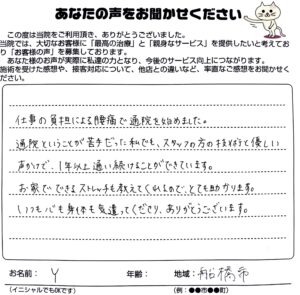 あなたの声をお聞かせください
この度は当院をご利用頂き、ありがとうございました。
当院では、大切なお客様に「最高の治療」と「親身なサービス」を提供したいと考えてお
り「お客様の声」を募集しております。
あなた様のお声が実際に私達の力となり、今後のサービス向上につながります。
施術を受けた感想や、接客対応について、他店との違いなど、率直なご感想をお聞かせく
ださい。
仕事の負担による腰痛で通院を始めました。
通院ということが苦手だった私でも、スタッフの方のすばやく優しい
声かけで、1年以上通い続けることができています。
お家でできるストレッチも教えてくれるので、とても助かります。
いつも心も身体も気遣ってくださり、ありがとうございます。
お名前： Y 年齢： 地域： 船橋市
(イニシャルでもOKです) (例：●●市●●町)